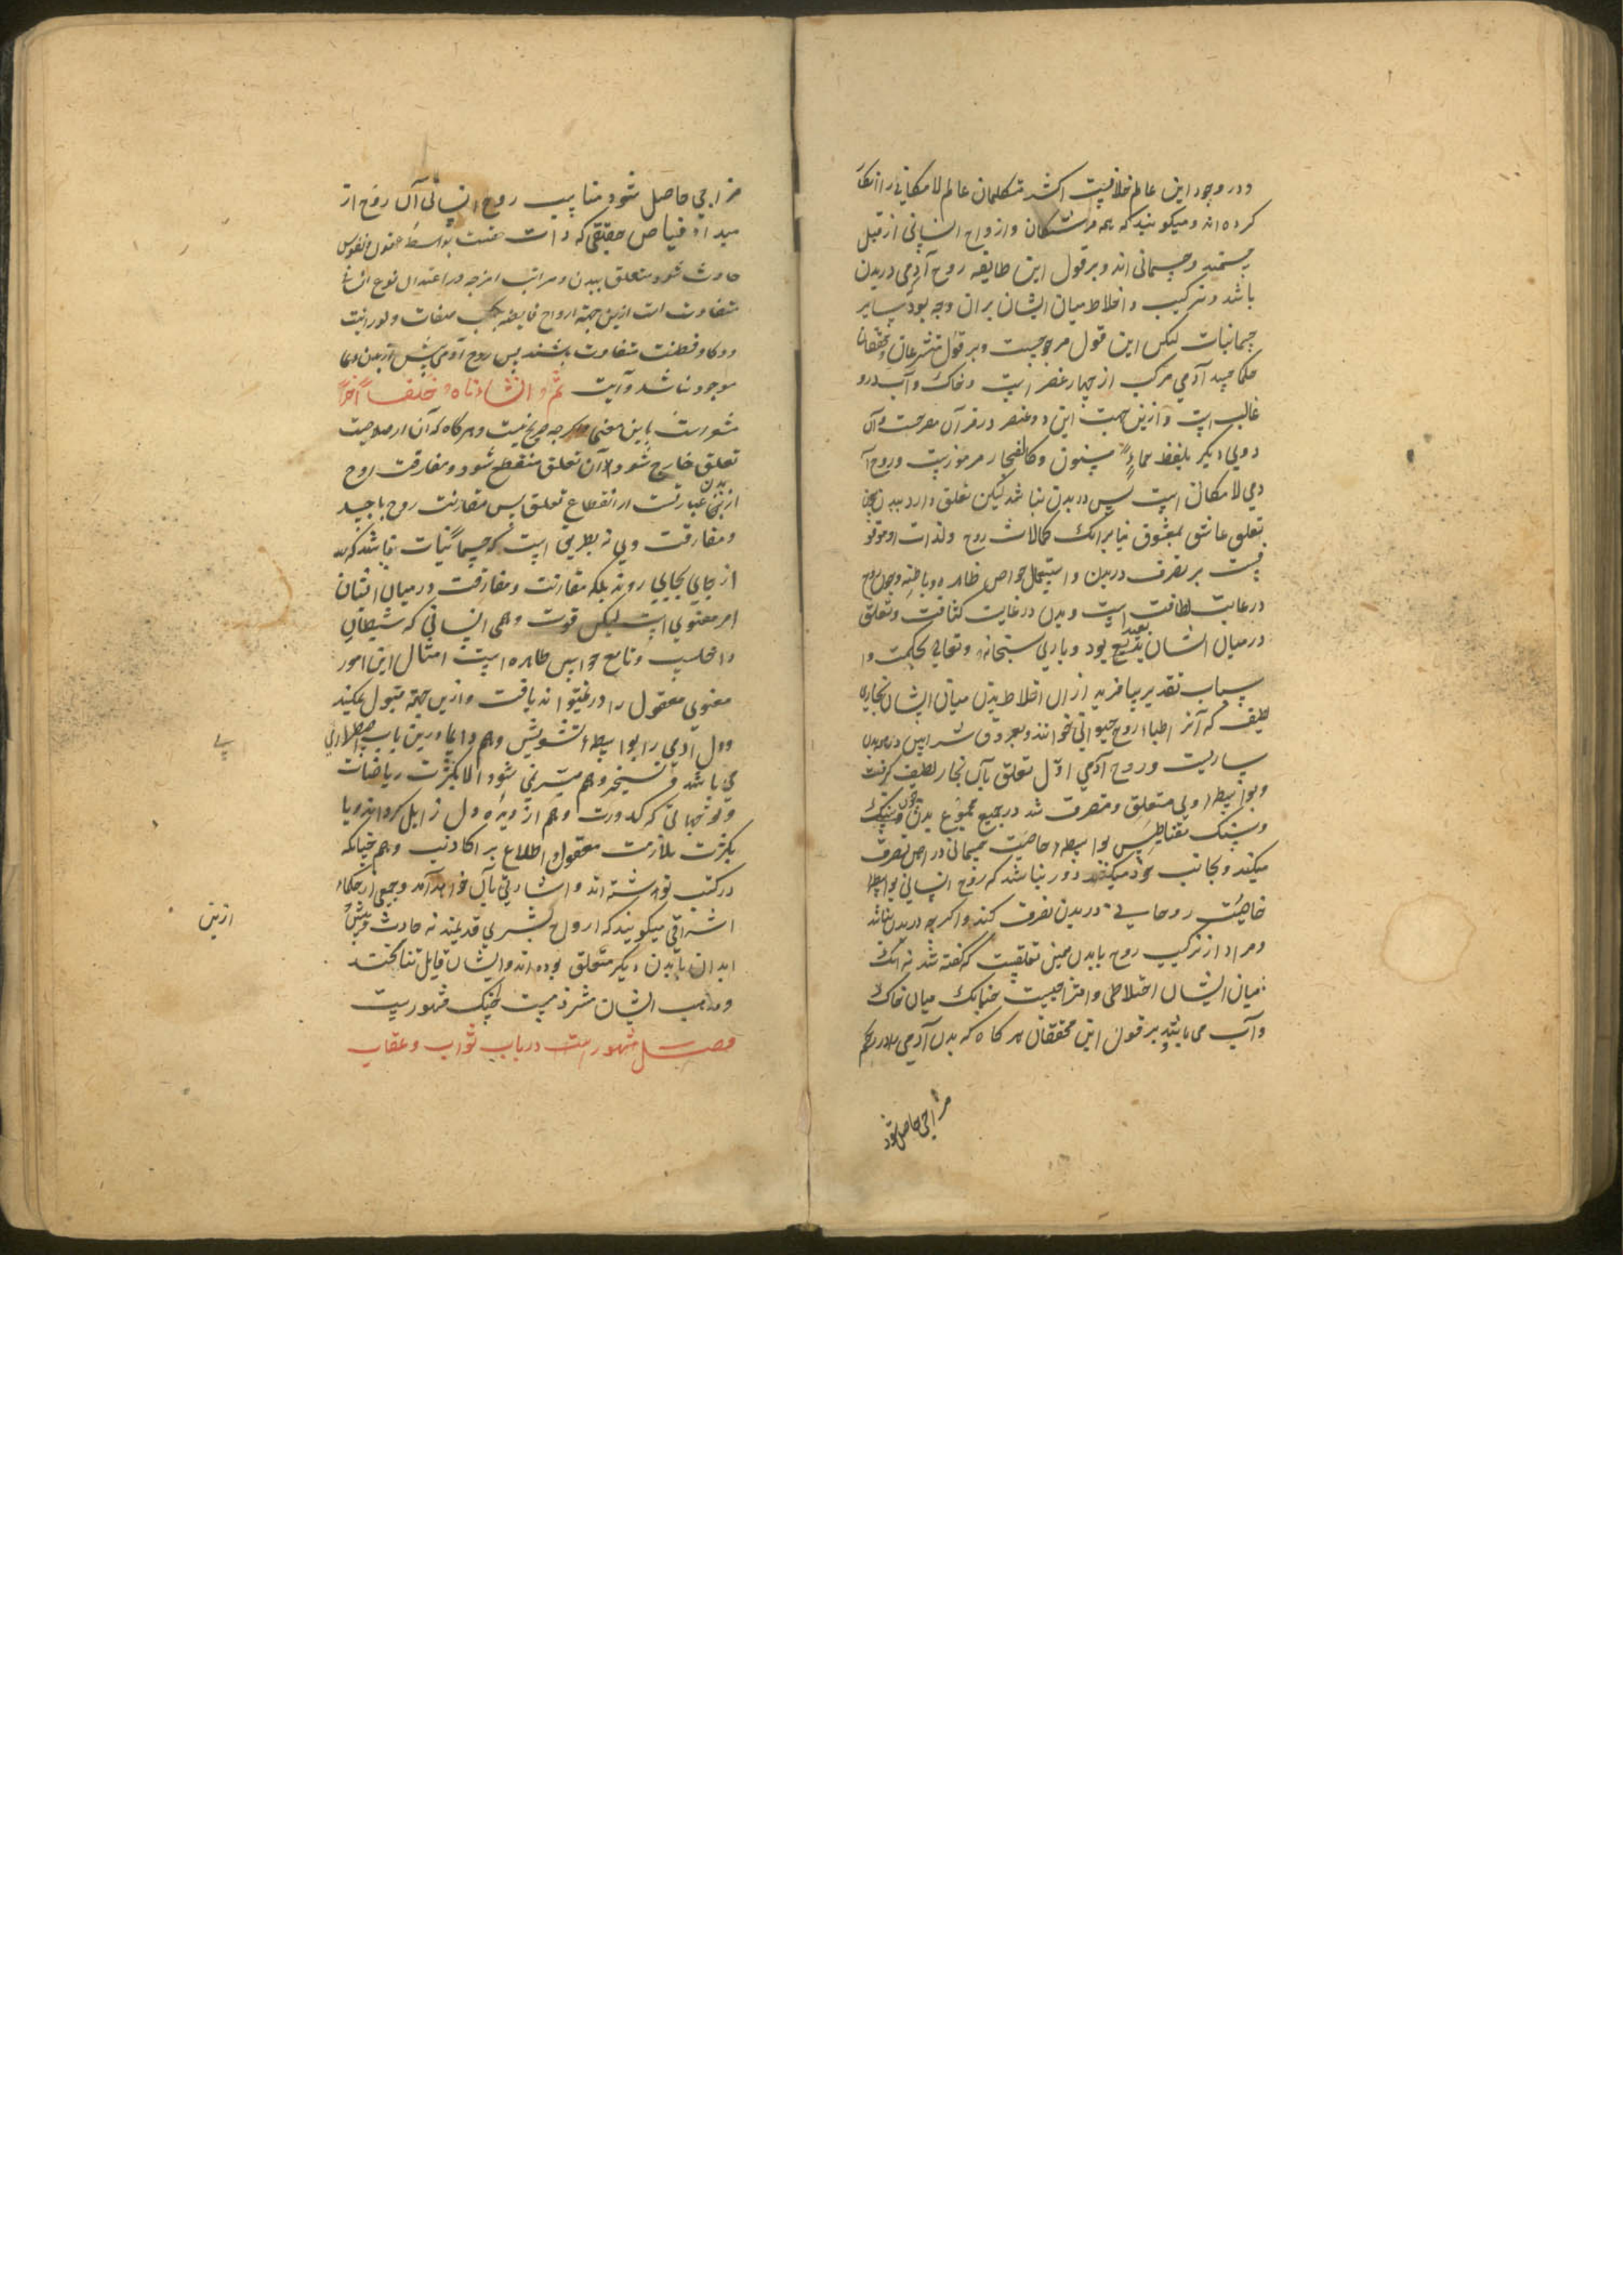 ودر وجود این عالم خلافیست اکثر متکلمان عالم لا مکانی را انکار
کرده اند ومیکویند که همه فرشتکان وارواح انسانی از قبیل
جسمند وجسمانی اند وبر قول این طایفه روح آدمی در بدن
باشد وترکیب واختلاط میان ایشان بران وجه بود سایر
جسمانیات لیکن این قول مرجوحیست وبر قول متشرعان ومحققان
حکما جسد آدمی مرکب از چهار عنصر است وخاک وآب درو
غالب است وازین جهت این دو عنصر در قرآن مصرحست وآن
دوی دیکر بلفظ حماءٍ مسنون وکالفخار مرموزست وروح آ
دمی لا مکانی است پس در بدن نباشد لیکن تعلق دارد ببدن
تعلق عاشق بمعشوق بنا برانک کمالات روح ولذات او موقو
فست بر تصرف در بدن واستعمال حواس ظاهره وباطنه وچون روح
در غایت لطافت است وبدن در غایت کثافت وتعلق
در میان ایشان بعید بود وباری سبحانه وتعالی بحکمت وا
سباب تقدیر بیافرید از ان اختلاط بدن میان ایشان بخاری
لطیف که آنر اطباء روح حیوانی خوانند وبعروق شرایین در همه بدن
ساریست وروح آدمی اول تعلق بآن بخار لطیف کرفت
وبواسطه وی متعلق ومتصرف شد در جمیع مجموع بدن چون
وسنک مقناطیس بواسطه خاصیت جسمانی در آهن تصرف
میکند وبجانب خود میکشد دور نباشد که روح انسانی بواسطه
خاصیت روحانی در بدن تصرف کند واکر چه در بدن نباشد
ومراد از ترکیب روح با بدن همین تعلقیست که کفته شد نه آنک
میان ایشان اختلاطی وامتزاجیست چنانک میان خاک
وآب می باشد بر قول این محققان هر کاه که بدن آدمی را در رحم
مزاجی حاصل شود
مزاجی حاصل شود مناسب روح انسانی آن روح از
مبداء فیاض حقیقی که ذات بواسطه عقول ونفوس
حادث شود متعلق ببدن ومراتب امزجه در اعتدال نوع انسانی
متفاوت است ازین جهة ارواح بحسب صفات ونورانیت
وذکا وفطنت متفاوت باشند پس روح آدمی پیش از بدن
موجود نباشد وآیت ثم انشاءناه خلقا آخر
مشعرست باین معنی اکر چه صریح نیست وهر کاه که آن از صلاحیت
تعلق خارج شود آن تعلق منقطع شود ومفارقت روح
از بدن عبارتست از انقطاع تعلق پس مقارنت روح با جسد
ومفارقت وی نه بطریق است که جسمانیات باشد که
از جای بجایی روند بلکه مقارنت ومفارقت در میان ایشان
امر معنوی است لیکن قوت وهمی انسانی که شیطان
داخلست وتابع حواس ظاهره است امثال این امور
معنوی معقول را در نمیتواند یافت وازین جهة قبول نمیکند
ودل آدمی را بواسطهٔ تشویش وهم دایما درین باب اضطرابی
می باشد وتسخیر وهم میسر نمی شود الا بکثرت ریاضات
وتوجهاتی که کدورت وهم از دیدهٔ دل زایل کرداند ویا
بکثرت ملازمت معقول واطلاع بر اکاذیب وهم چنانکه
در کتب نوشته اند واشارتی بآن خواهد آمد وجمعی از حکماء
اشراقی میکویند که ارواح بشری قدیمند نه حادث وپیش
ابدان با بدن دیکر متعلق بوده اند وایشان قایل تناسخند
ومذهب ایشان مشهورست
فصل مشهور است در باب ثواب وعقاب
ازین